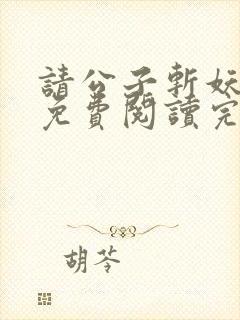 請公子斬妖
免費閱讀完
胡苓